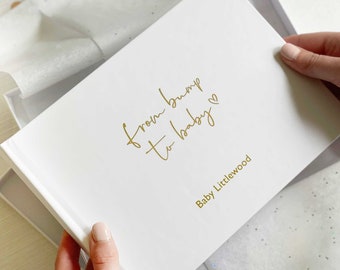 from bump
to baby
Baby Littlewood